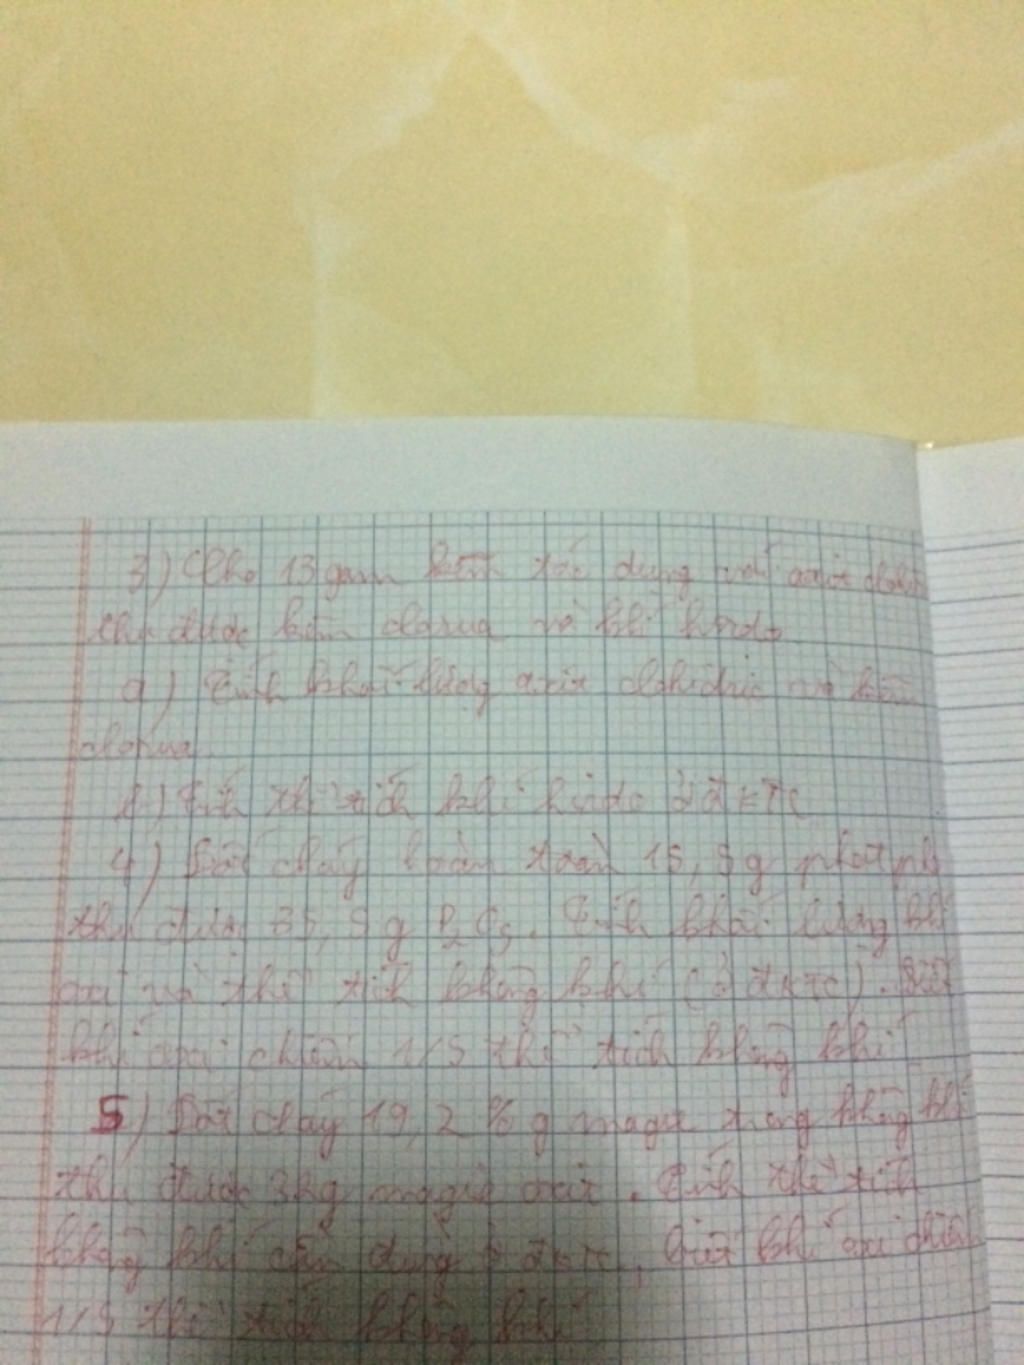 3) Cho 13 gam kẽm tác dụng với axit clohi
thu được kẽm clorua và khí hiđro
a) Tính khối lượng axit clohiđric và kẽm
clorua
b) Tính thể tích khí hiđro ở đktc
4) Đốt cháy hoàn toàn 15,5g phot pho
thu được 35,5g P2O5. Tính khối lượng khí
oxi và thể tích không khí (ở đktc). Biết
khí oxi chiếm 1/5 thể tích không khí
5) Đốt cháy 19,2 g magie trong không khí
thu được 32g magie oxit. Tính thể tích
không khí cần dùng ở đktc, biết khí oxi chiếm
1/5 thể tích không khí